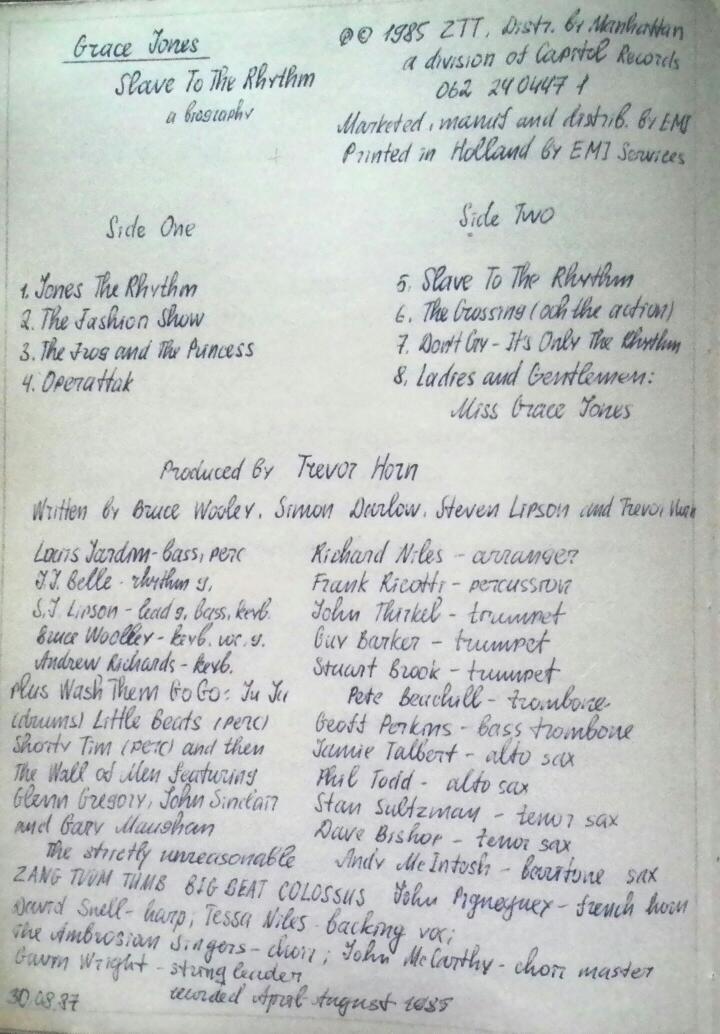 Grace Jones
Slave To The Rhythm
a biography
℗© 1985 ZTT, Distr. by Manhattan
a division of Capitol Records
062 24 0447 1
Marketed, manuf and distrib. by EMI
Printed in Holland by EMI Services
Side One
1. Jones The Rhythm
2. The Fashion Show
3. The Frog and The Princess
4. Operattak
Side Two
5. Slave To The Rhythm
6. The Crossing (ooh the action)
7. Don't Cry - It's Only The Rhythm
8. Ladies and Gentlemen:
Miss Grace Jones
Produced by Trevor Horn
Written by Bruce Wooley, Simon Darlow, Steven Lipson and Trevor Horn
Louis Jardim - bass, perc
J.J. Belle - rhythm g,
S.J. Lipson - lead g, bass, keyb.
Bruce Woolley - keyb. voc. g.
Andrew Richards - keyb.
plus Wash Them Go Go: Ju Ju
(drums) Little Beats (perc)
Shorty Tim (perc) and then
The Wall of Men featuring
Glenn Gregory, John Sinclair
and Gary Maughan
The strictly unreasonable
ZANG TUUM TUMB BIG BEAT COLOSSUS
Richard Niles - arranger
Frank Ricotti - percussion
John Thirkel - trumpet
Guy Barker - trumpet
Stuart Brook - trumpet
Pete Beachill - trombone
Geoff Perkins - bass trombone
Jamie Talbert - alto sax
Phil Todd - alto sax
Stan Sultzman - tenor sax
Dave Bishop - tenor sax
Andy McIntosh - baritone sax
John Pigneguy - french horn
David Snell - harp; Tessa Niles - backing voc;
The Ambrosian Singers - choir; John McCarthy - choir master
Gavin Wright - string leader
recorded April-August 1985
30.08.87